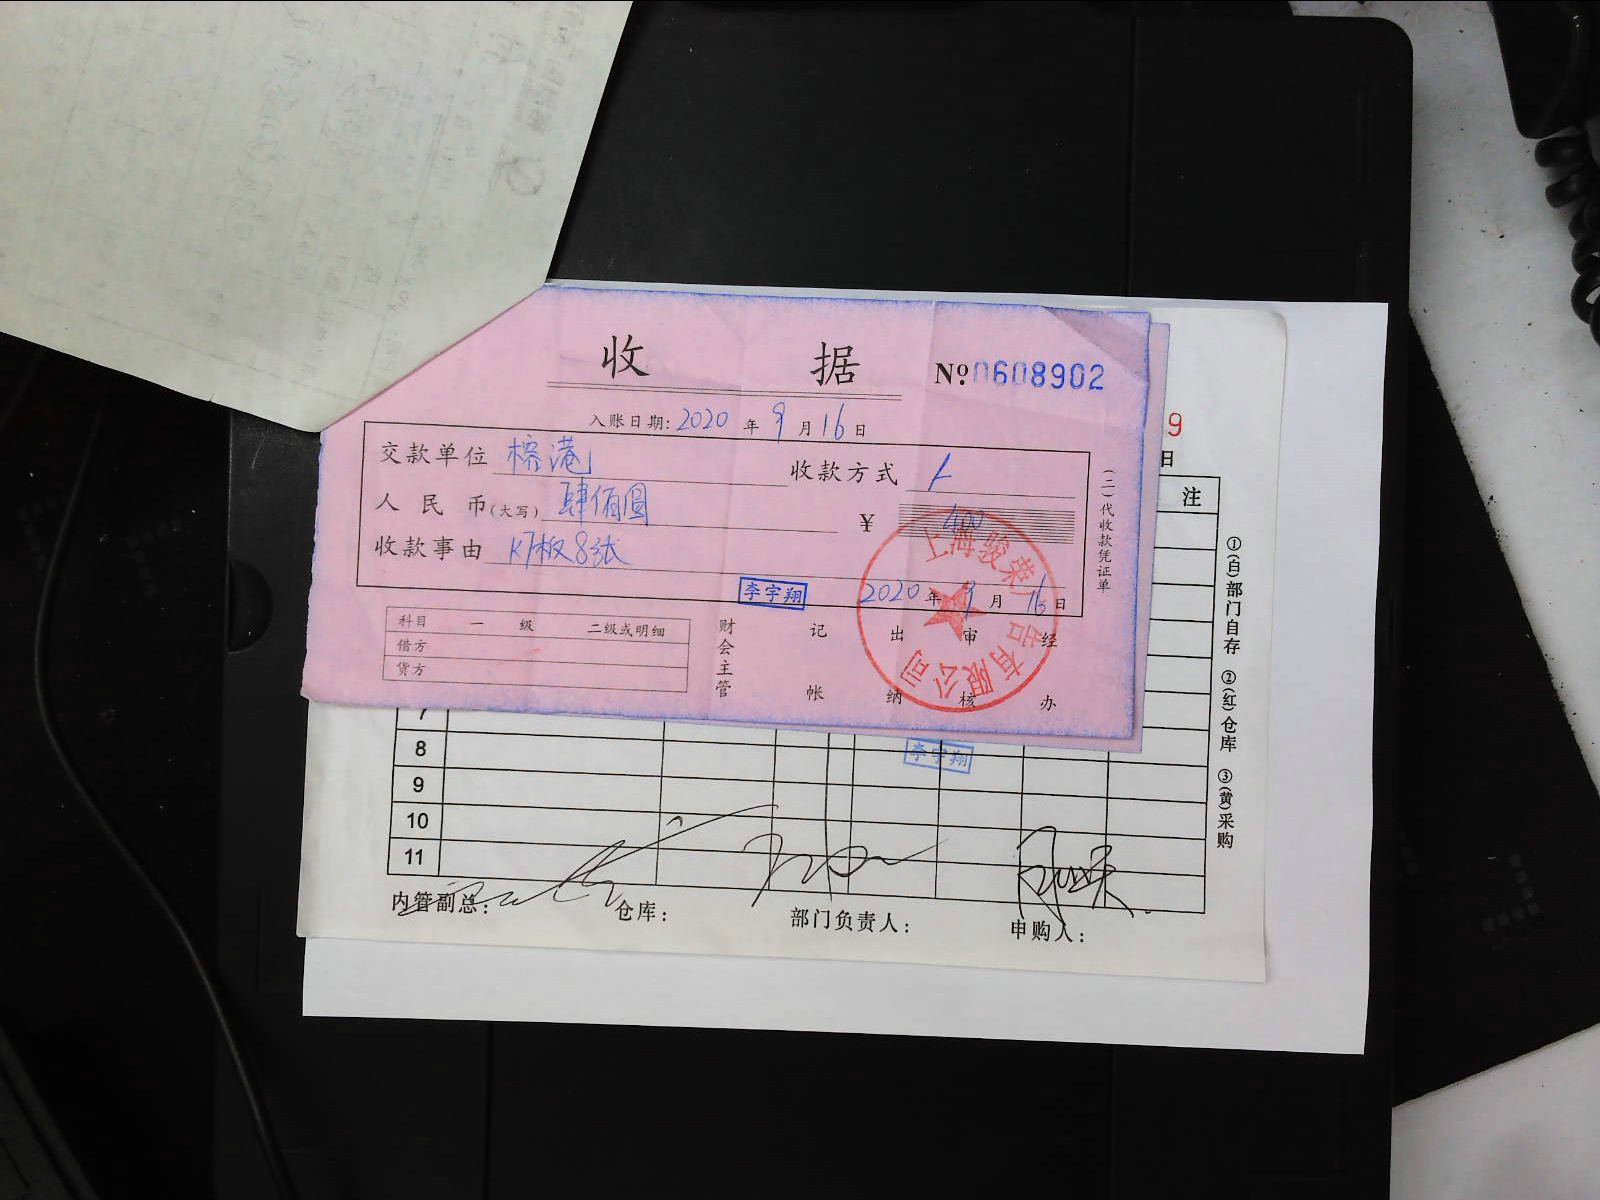 收 据 No 0608902
入账日期: 2020 年 9 月 16 日
交款单位 榕港 收款方式
人民币(大写) 肆佰圆 ¥ 400
收款事由 KT板8张
李宇翔 2020 年 9 月 16 日
科目 一 级 二级或明细
借方
贷方
财会主管 记帐 出纳 审核 经办
(二)代收款凭证单
上海骏荣广告有限公司
9
日
注
7
8
李宇翔
9
10
11
内管副总: 仓库: 部门负责人: 申购人:
①(白)部门自存 ②(红)仓库 ③(黄)采购